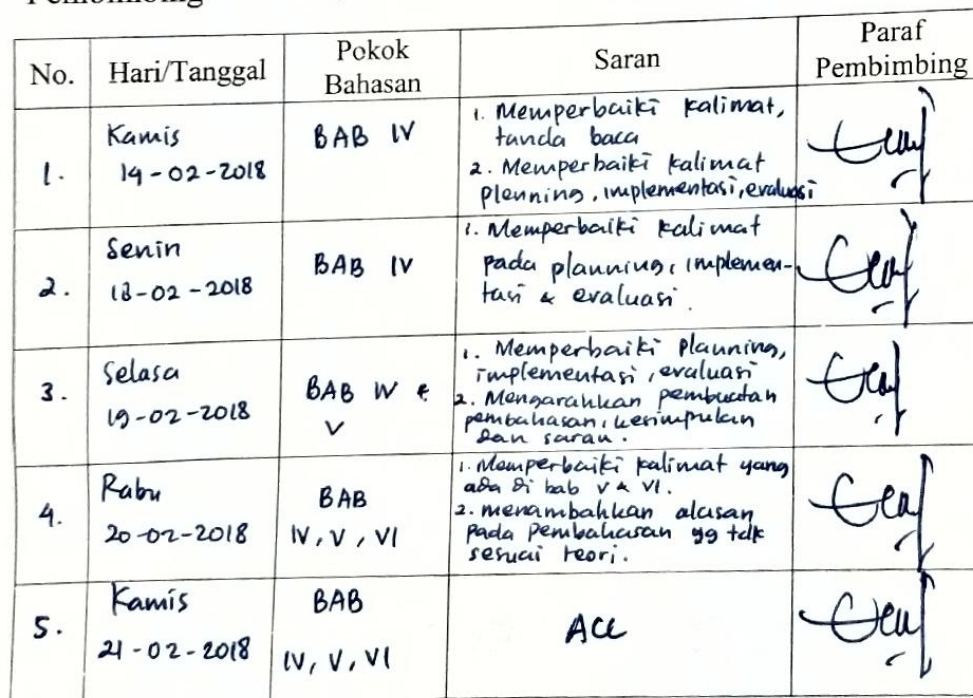 Pembimbing
No. Hari/Tanggal Pokok Bahasan Saran Paraf Pembimbing
1. Kamis 14-02-2018 BAB IV
1. Memperbaiki kalimat,
tanda baca
2. Memperbaiki kalimat
planning, implementasi, evaluasi
2. Senin 18-02-2018 BAB IV
1. Memperbaiki kalimat
pada planning, implemen-
tasi & evaluasi.
3. Selasa 19-02-2018 BAB IV & V
1. Memperbaiki planning,
implementasi, evaluasi
2. Mengarahkan pembuatan
pembahasan, kesimpulan
dan saran.
4. Rabu 20-02-2018 BAB IV, V, VI
1. Memperbaiki kalimat yang
ada di bab V & VI.
2. menambahkan alasan
pada pembahasan yg tdk
sesuai teori.
5. Kamis 21-02-2018 BAB IV, V, VI
ACC